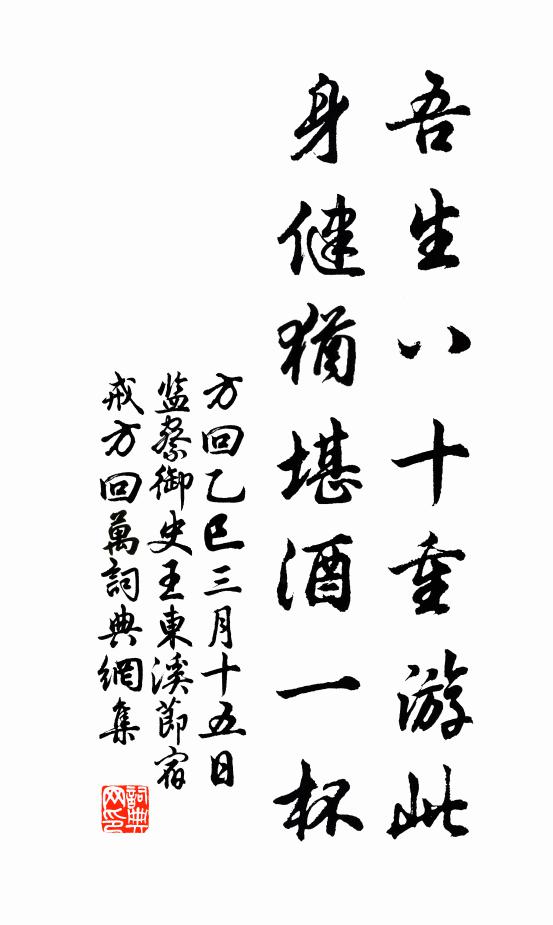 吾生八十重游此
身健猶堪酒一杯
方回乙巳三月十五日
监察御史王東溪節宿
戒方回萬詞典網集
詞典网印